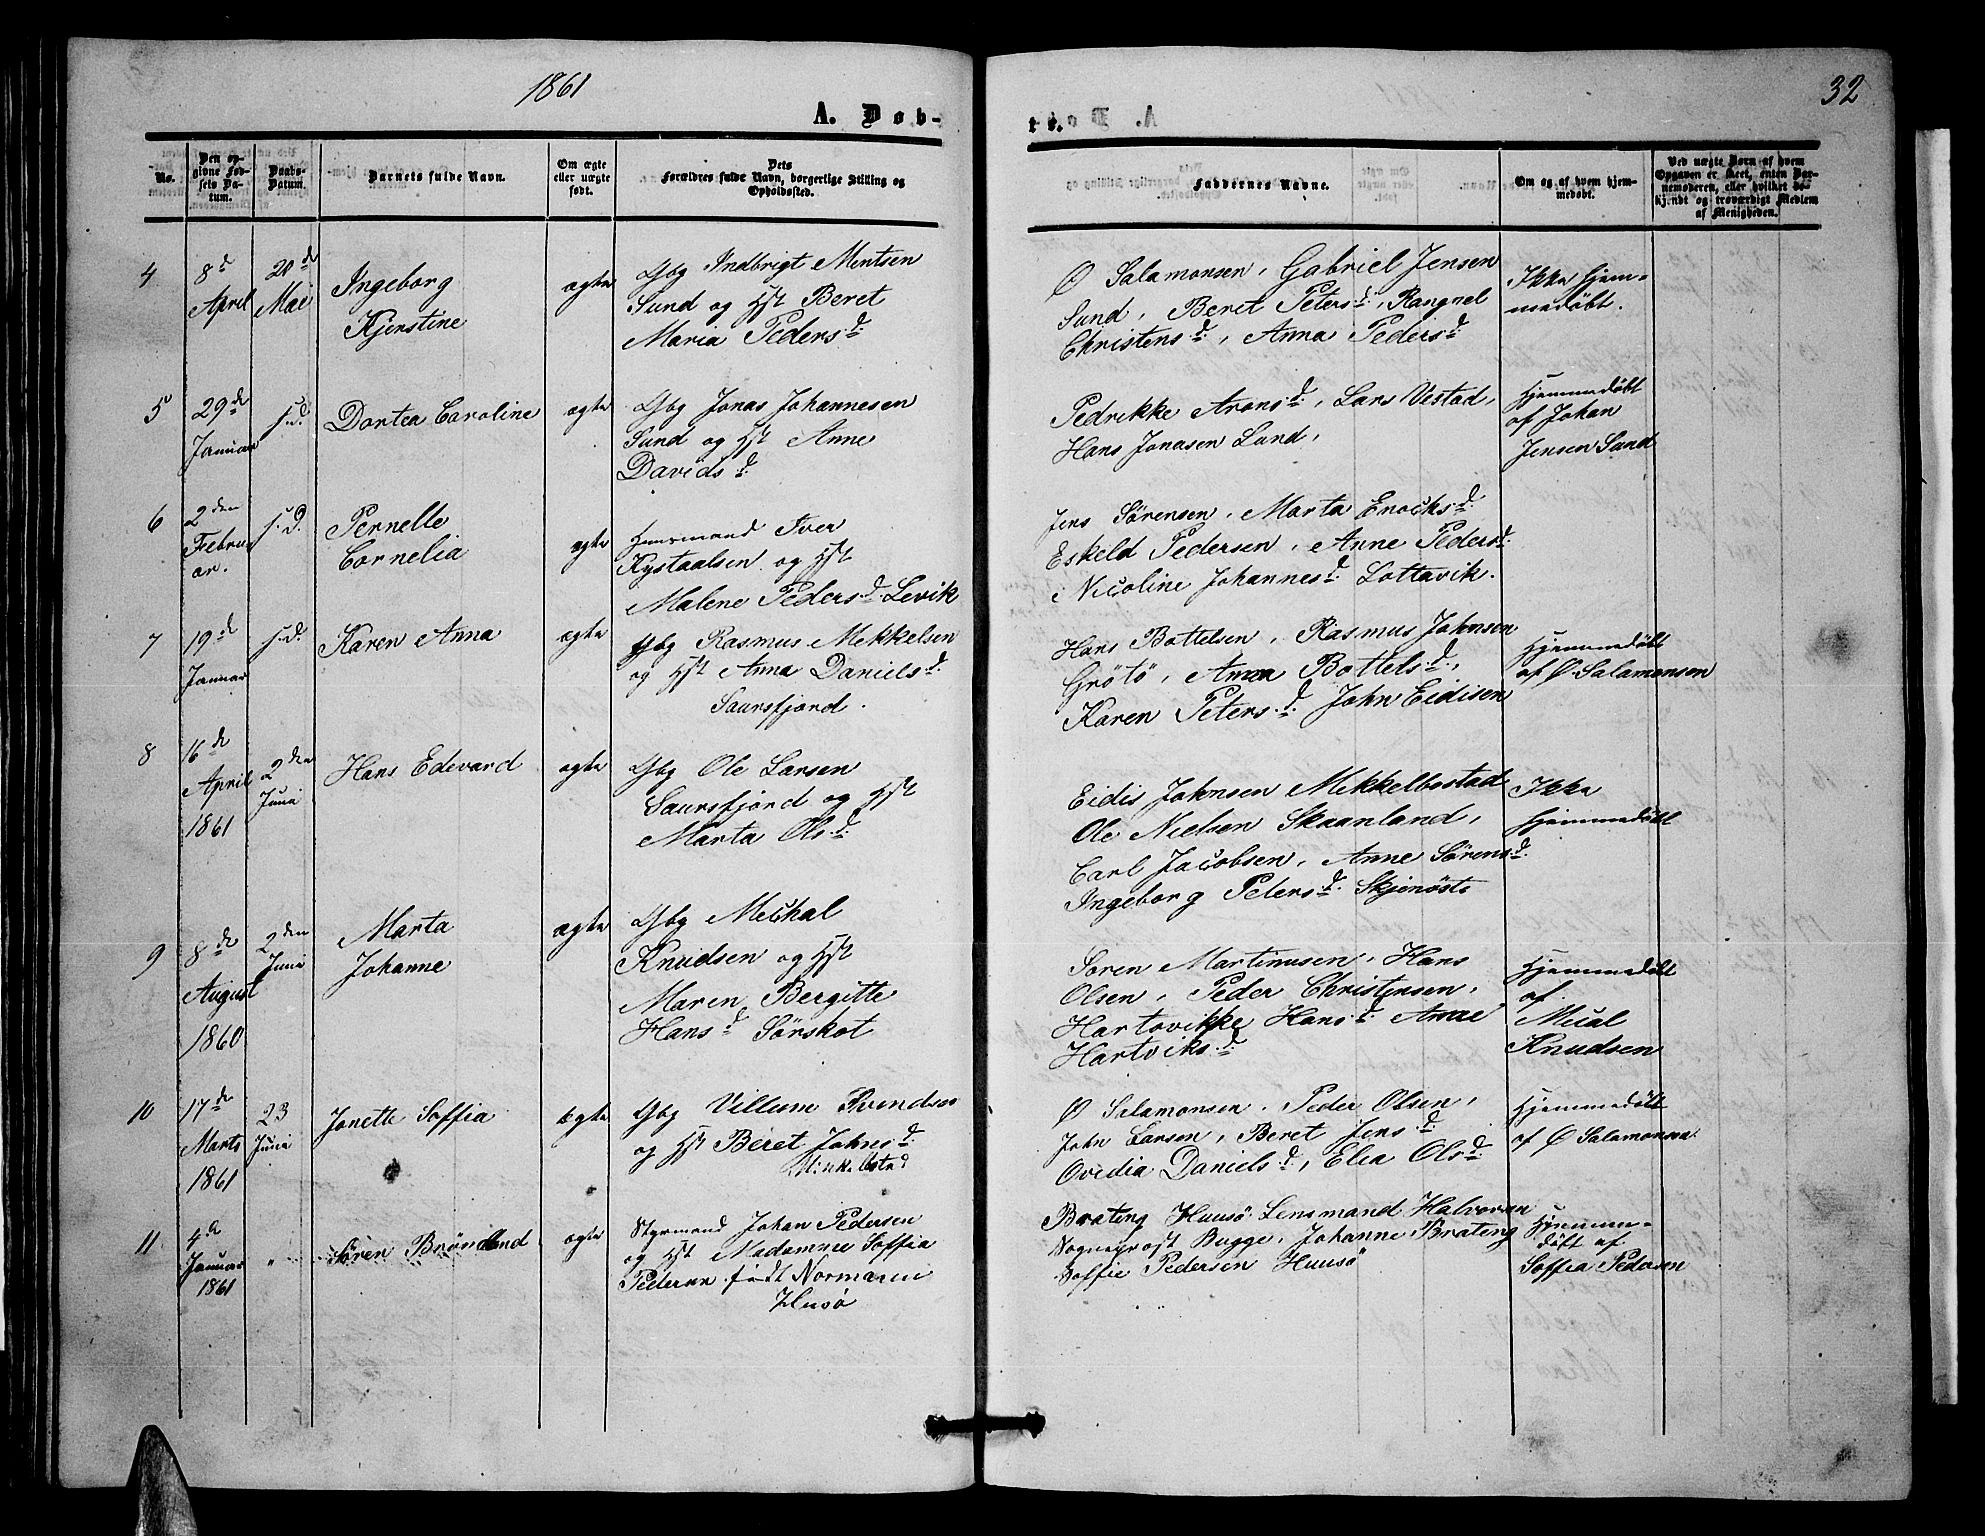 1861
A. Døb-
No.
Den op-
givne Fød-
sels Da-
tum.
Daabs-
Datum.
Barnets fulde Navn.
Om ægte
eller uægte
født.
Dets
Forældres fulde Navn, borgerlige Stilling og
Opholdssted.
4
8de
April
20de
Mai
Ingeborg
Kjerstine
ægte
Gbg Indbrigt Mentsen
Sund og Hst Beret
Maria Pedersd
5
29de
Januar
s.d.
Dortea Caroline
ægte
Gbg Jonas Johannesen
Sund og Hst Anne
Davidsd
6
2den
Febru
ar.
s.d.
Pernelle
Cornelia
ægte
Huusmand Iver
Krystaalsen og Hst
Malene Pedersd Levik
7
19de
Januar
s.d.
Karen Anna
ægte
Gbg Rasmus Mekkelsen
og Hst Anna Danielsd
Saursfjord.
8
16de
April
1861
2den
Juni
Hans Edevard
ægte
Gbg Ole Larsen
Saursfjord og Hst
Marta Olsd
9
8de
August
1860
2den
Juni
Marta
Johanne
ægte
Gbg Mechal
Knudsen og Hst
Maren Bergitte
Hansd Sörskot
10
17de
Marts
1861
23
Juni
Jonette Soffia
ægte
Gbg Villum Svendsen
og Hst Beret Johnsd
11
4de
Januar
1861
"
Sören Bröndlund
ægte
Styrmand Johan Pedersen
og Hst Madamme Soffia
Pedersen födt Normann
Husö
32
te.
Faddernes Navne.
Om og af hvem hjem-
medøbt.
Ved uægte Børn af hvem
Opgaven er skeet, enten Bar-
nemoderen, eller hvilket be-
kjendt og troværdigt Medlem
af Menigheden.
Ø Salamonsen, Gabriel Jensen
Sund, Beret Petersd, Rangnel
Christensd, Anna Pedersd
Ikke hjem-
medöbt.
Pedrikke Aronsd, Lars Vestad,
Hans Jonasen Sund,
Hjemmedöbt
af Johan
Jensen Sund
Jens Sörensen, Marta Enocksd
Eskeld Pedersen, Anne Pedersd
Nicoline Johannesd Lottavik.
Hans Bottelsen, Rasmus Johnsen
Grötö, Anna Bottelsd,
Karen Petersd John Eidisen
Hjemmedöbt
af Ø. Salamonsen
Eidis Johnsen Mekkelbostad
Ole Nielsen Skaanland,
Carl Jacobsen, Anne Sörensd
Ingeborg Petersd Skjenöste
Ikke
Hjemmedöbt
Soren Martinusen, Hans
Olsen, Peder Christensen,
Hartovikke Hansd Anne
Hartviksd
Hjemmedöbt
af
Mical
Knudsen
Ø Salamonsen, Peder Olsen,
John Larsen, Beret Jensd
Ovedia Danielsd, Elea Olsd
Hjemmedöbt
af Ø Salamonsen
Brateng Huusö Lensmand Halvorsen
Sogneprost Bugge, Johanne Brateng
Soffie Pedersen Huusö
Hjemme-
döbt af
Soffia Pedersen